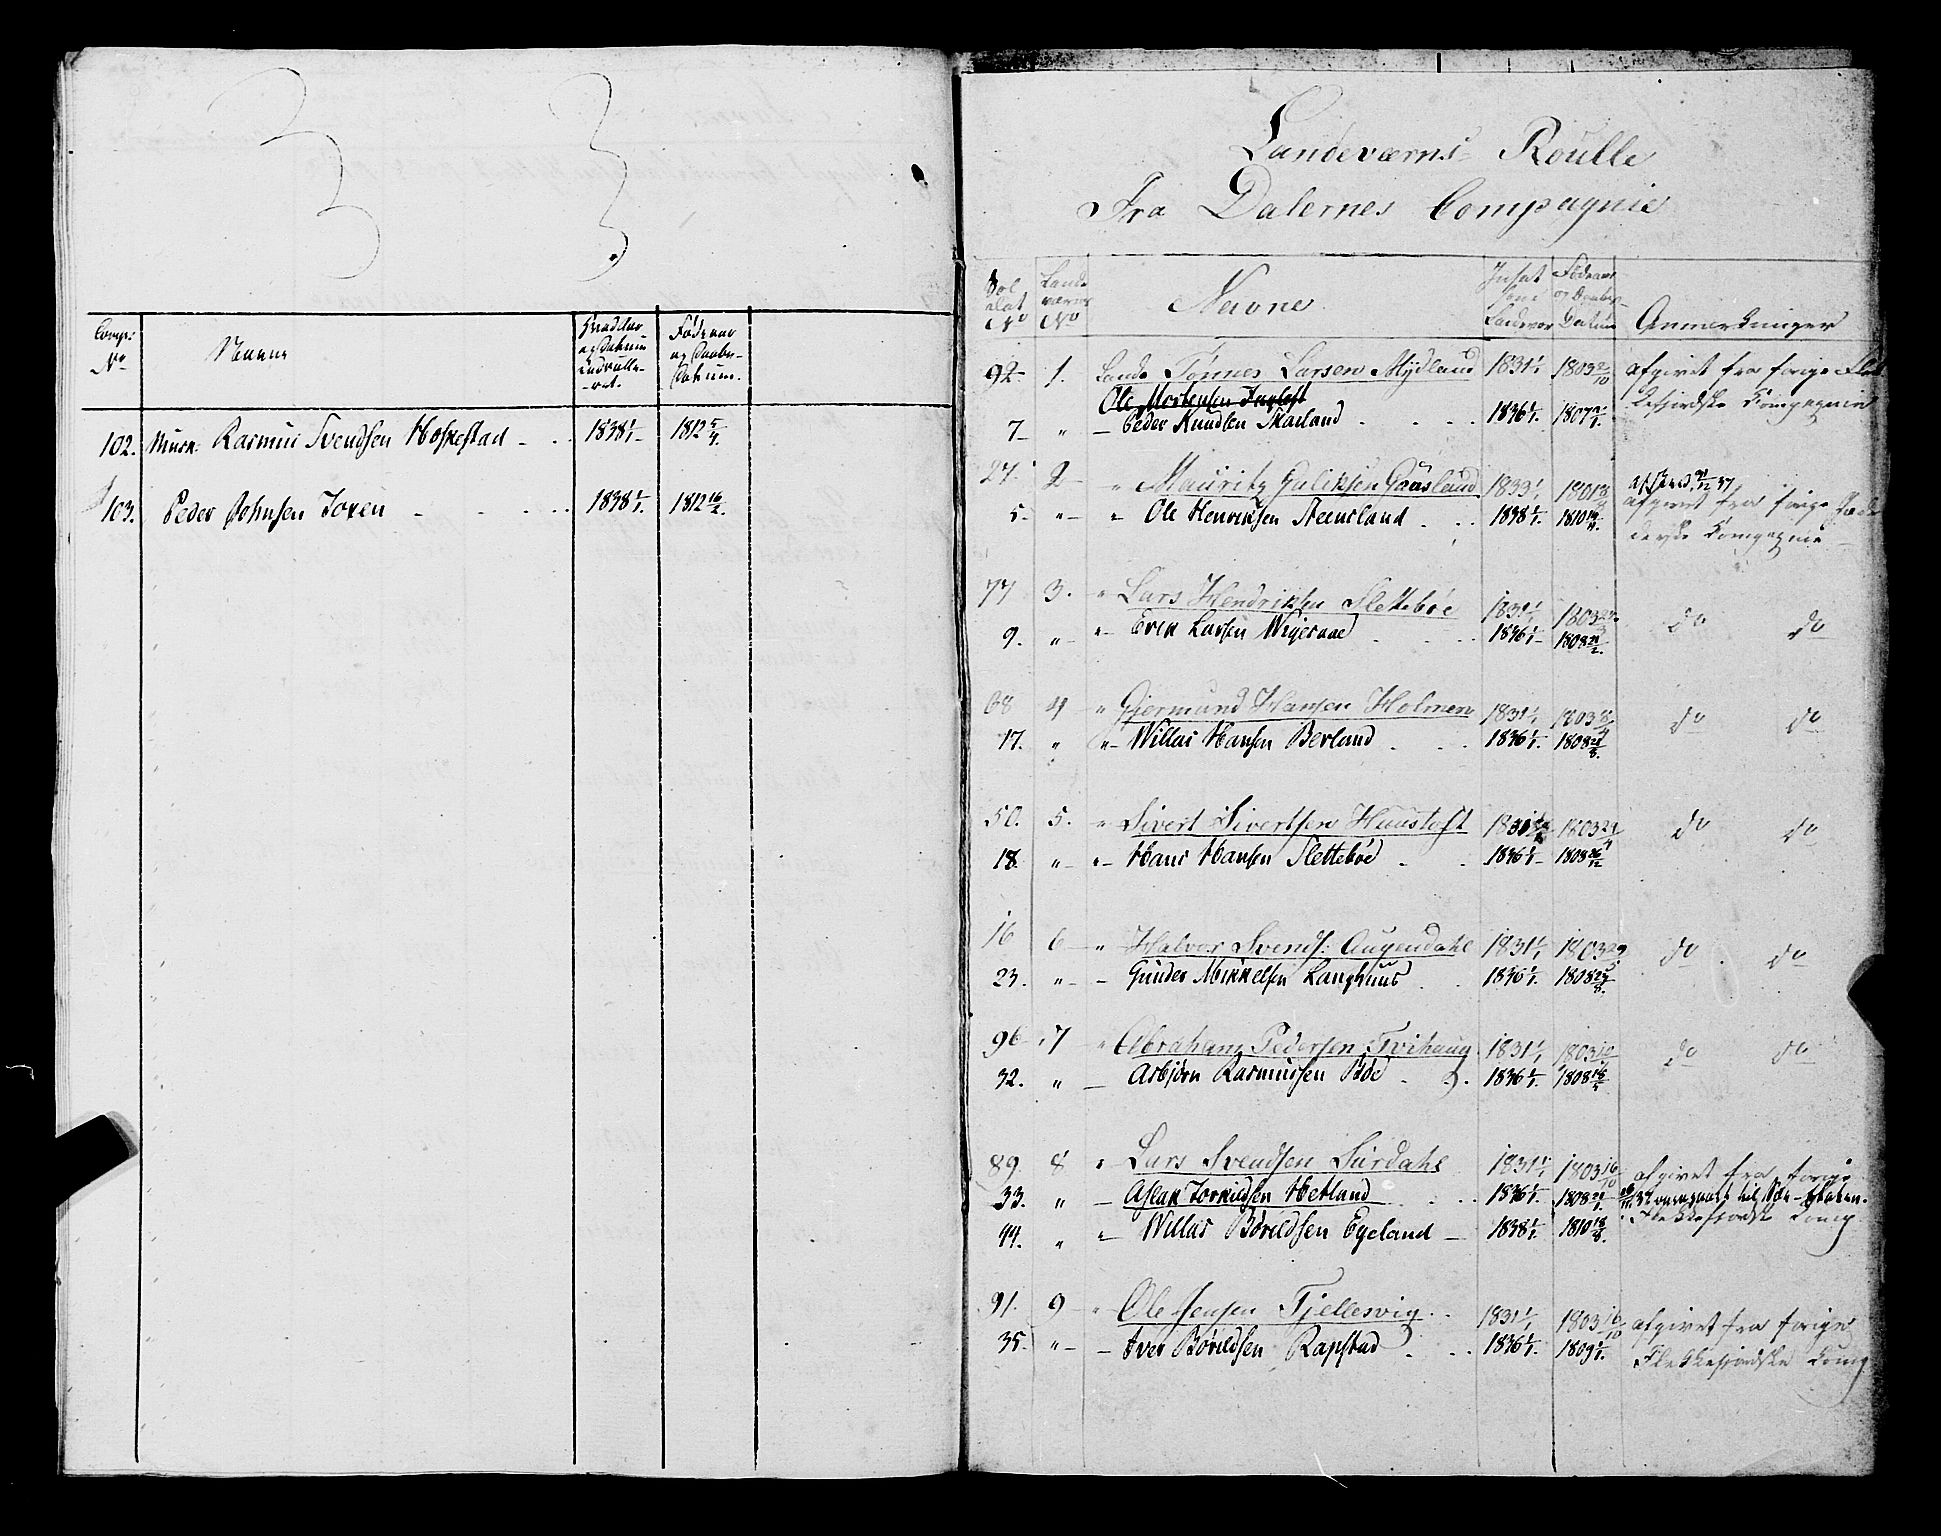 3 3
Comp: No Navne Hvad Aar og Datum indrulle-ret. Fødeaar og Daabs-Datum.
102. Musk. Rasmus Svendsen Hoskestad - 1838 1/1 - 1812 5/4.
103. Peder Johnsen Joren - 1838 1/1. 1812 16/2.
Landeværns- Roulle
Fra Dalernes Compagnie
Sol dat No Lande værns No Navne Indsat som Landevær Fødeaar og Daabs-Datum Anmærkninger
92 1. Lands Tønnes Larsen Mydland 1831 1/1 1803 2/10 afgivet fra forige Flek
Ole Mortensen
kefjordske Compagnie
7 " - Peder Knudsen Skailand 1836 1/1. 1807
27. 2 " Mauritz Guliksen Gaasland 1833 1/1 1801
afgivet fra forige Jæde
5. " - " Ole Henriksen Steensland 1838 1/1. 1810
derske Compagnie
77 3. " Lars Hendriksen Slettebøe 1831 1/1 1803 do do
9. " - " - Erik Larsen Wigesaae 1836 1/1 - 1808
68 4 " Gjermund Hansen Holmen 1831 1/1 1803 do do
17. " " - Willas Hansen Berland 1836 1/1. 1808
50. 5. " Sivert Sivertsen Haustoft 1831 1803 do do
18. " - " - Hans Hansen Slettebøe 1836 1/1 - 1808 26/12
16 6 - " Halvor Svends: Augendahl 1831 1/1 1803 do do
23. " - - Gunder Mikkelsen Langhuus 1836 1/1. 1808
96 - 7 " Abraham Pedersen Tvihaug 1831 1/1 1803 do do
32. " - Asbjørn Rasmussen Bøe 1836 1/1. 1808
89. 8 " Lars Svendsen Surdahl 1831 1/1 1803 16/10 afgivet fra forige
33. " - Aslak Torkildsen Hetland 1836 1/1. 1808
Flekkefjordske Comp
44. " " - Willas Børildsen Egeland - 1838 1/1. 1810 18/8.
91. 9 - " Ole Jensen Fjellesvig 1831 1/1 1803 16/10 afgivet fra forige
35. " - - Iver Børildsen Rapstad 1836 1/1. 1809 1/1. Flekkefjordske Comp